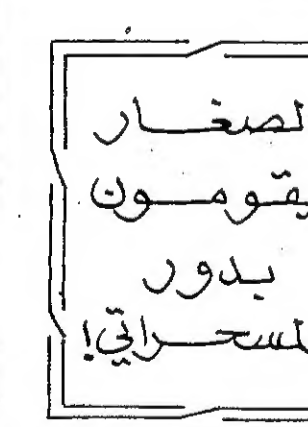 لصغار
يقومون
بدور
لمسحراتي!